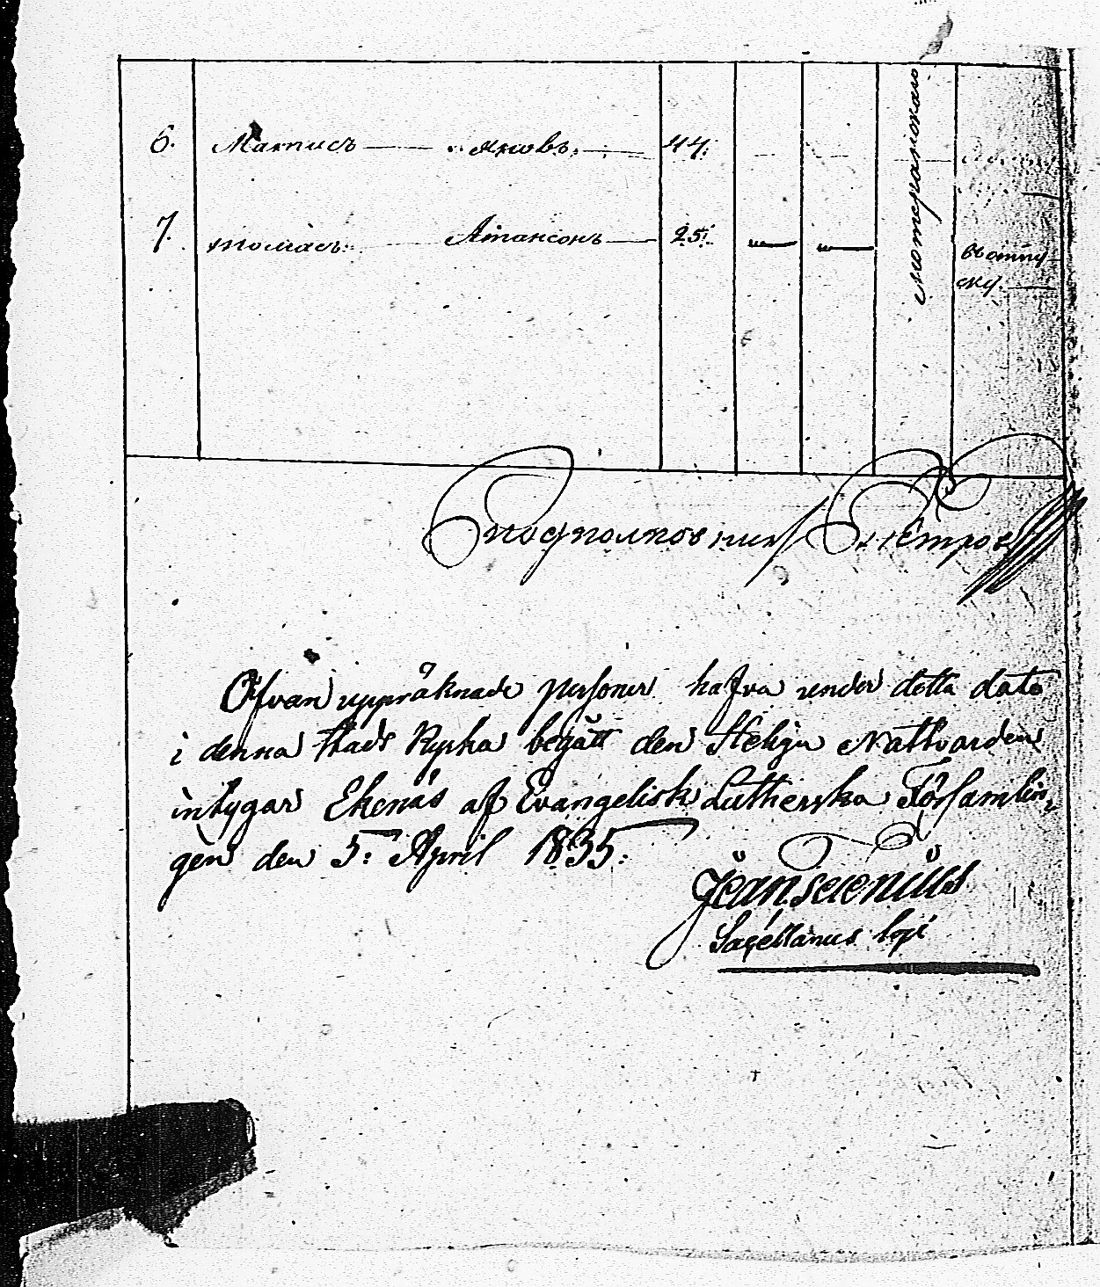 6. Магнисъ Яковъ. 44.
7. Томасъ. Атансонъ 25.
въ отпу
ску.
Подполковникъ Петровъ
Ofvan uppräknade personer hafva under detta dato
i denna stads Kyrka begått den Heliga Nattvarden
intygar Ekenäs af Evangelisk Lutherska Församlin-
gen den 5: April 1835:
Jean
Sacellanus loci